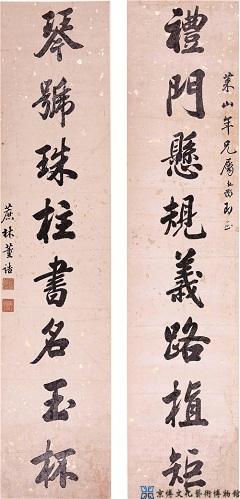 禮門懸規義路植矩
萊山年兄屬正
琴號珠柱書名玉杯
蔗林董誥
京博文化藝術博物館